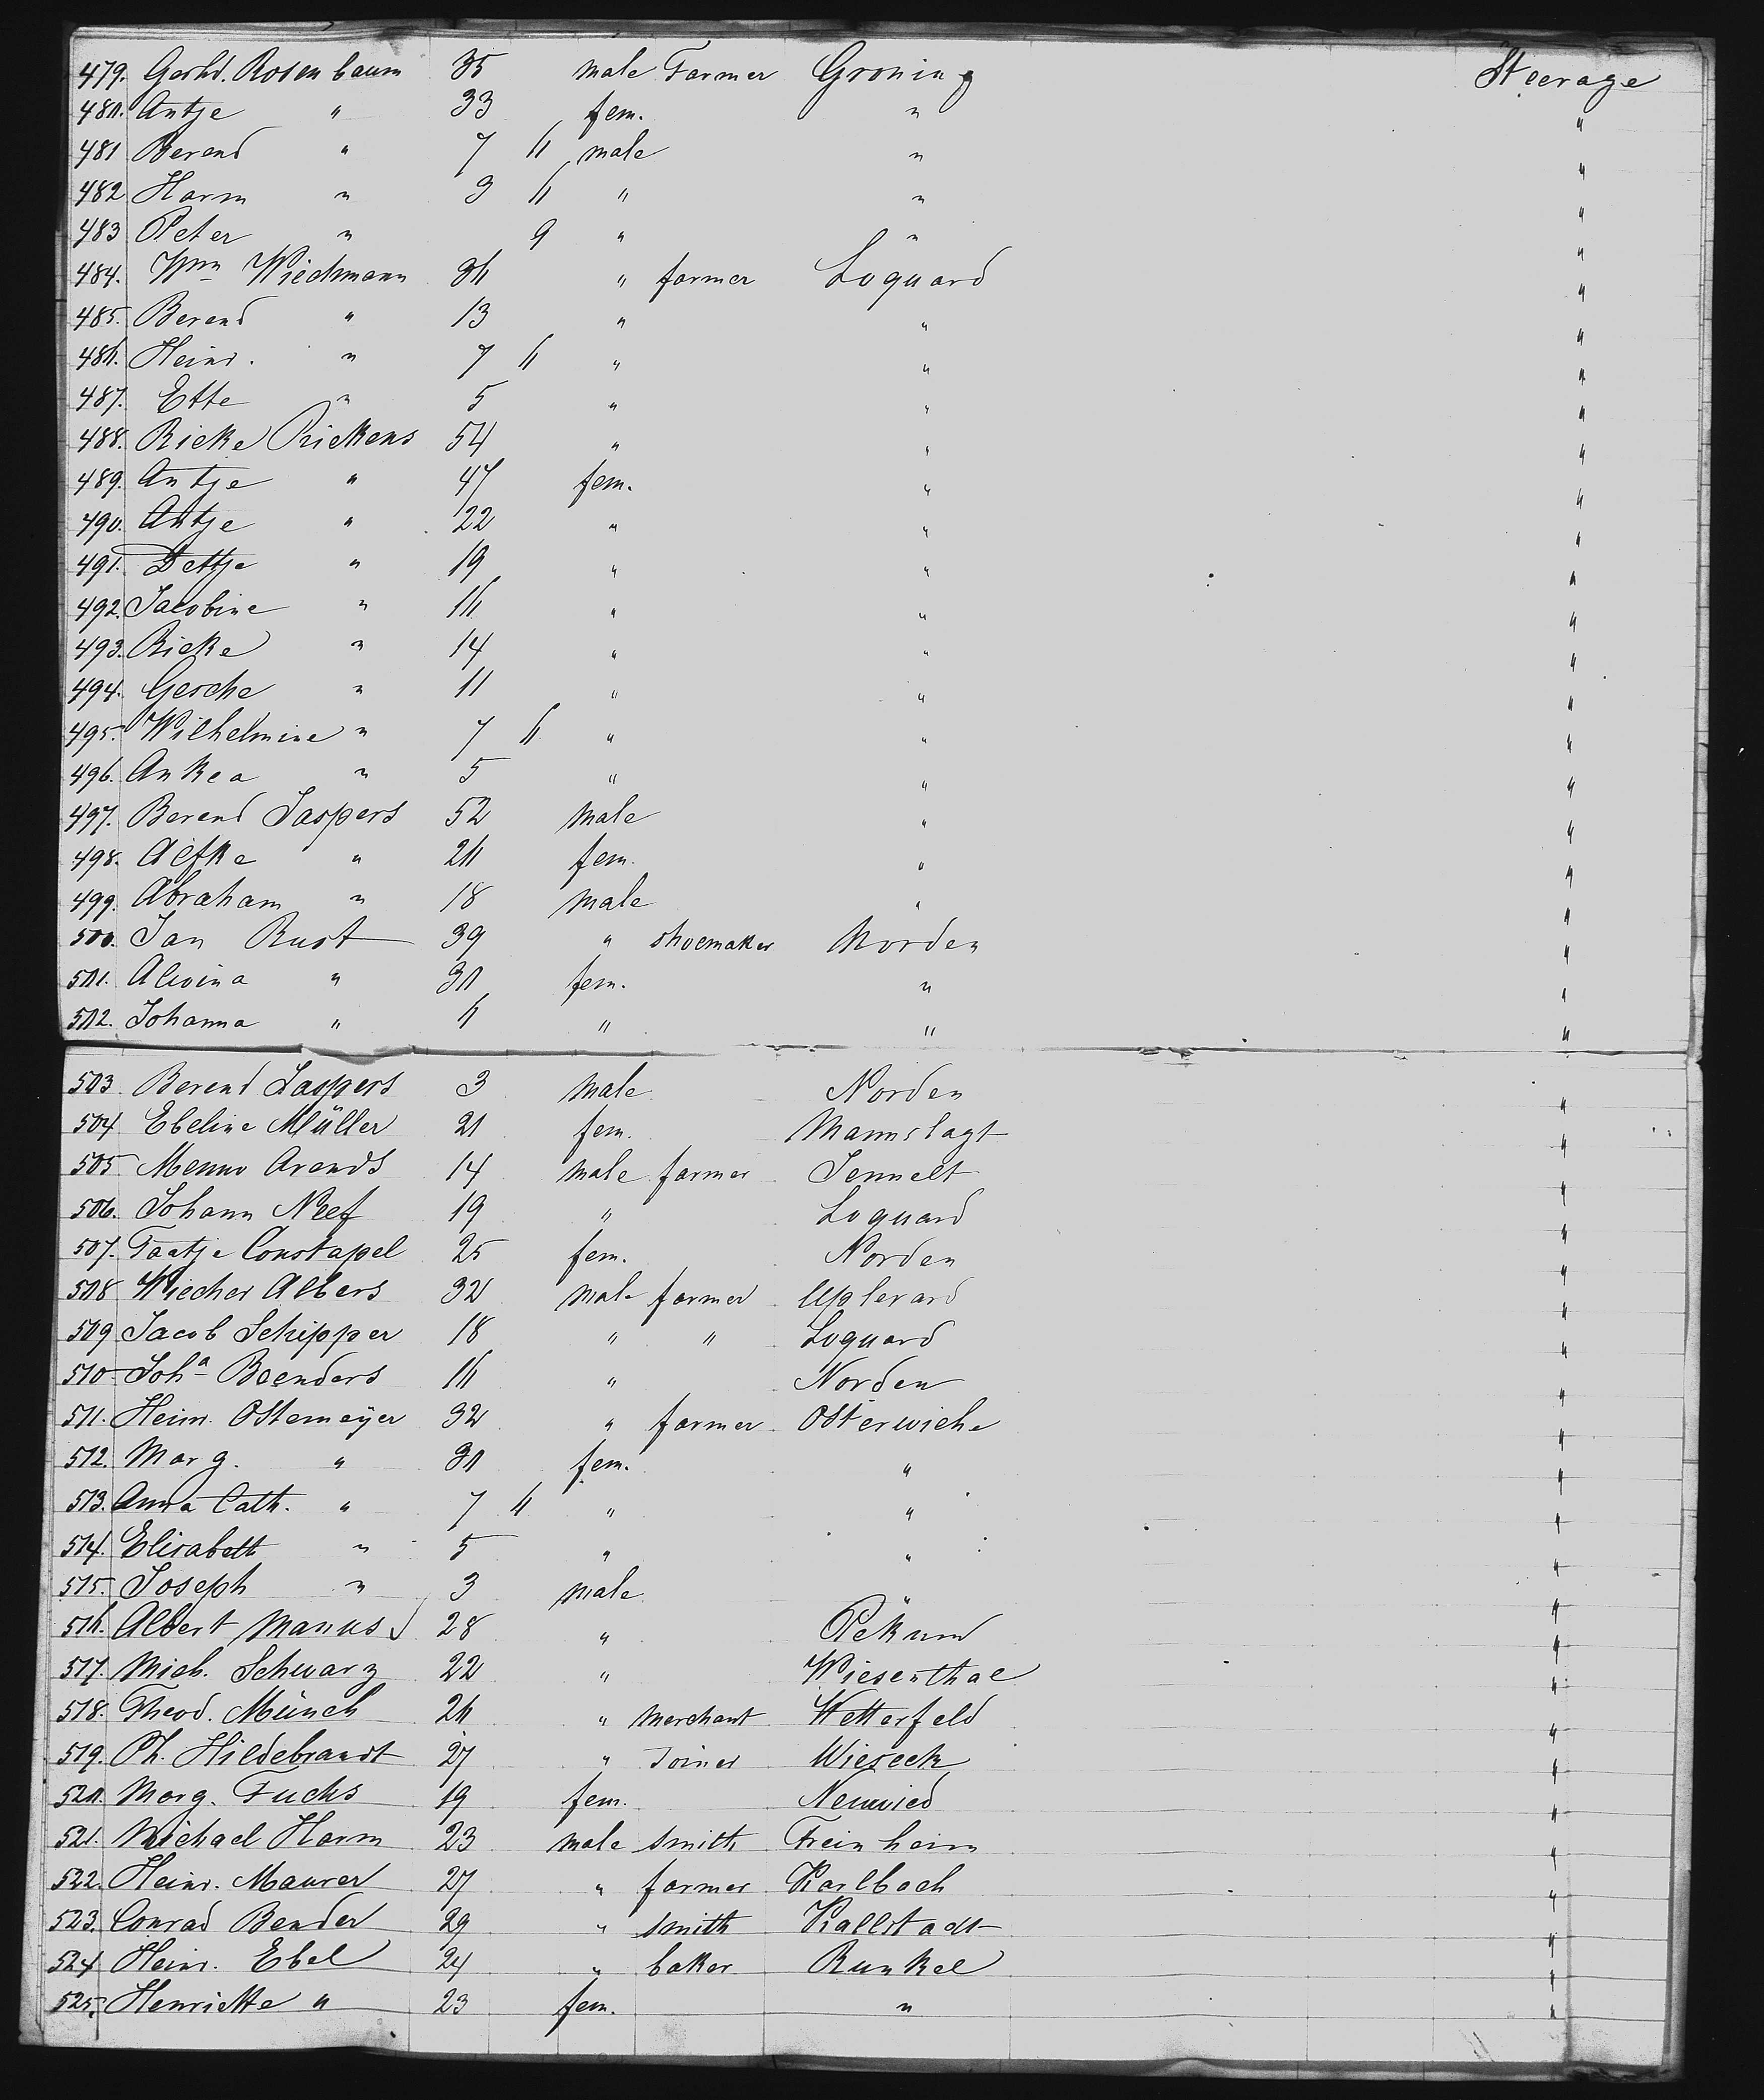 479. Gerhd. Rosenbaum 35 male Farmer Groning Steerage
480. Antje " 33 fem. " "
481 Berend " 7 6 male " "
482 Harm " 3 6 " " "
483 Peter " 9 " " "
484. Wm Wiechmann 36 " farmer Loquard "
485. Berend " 13 " " "
486. Heinr. " 7 6 " " "
487. Ette " 5 " " "
488. Rieke Rickens 54 " " "
489. Antje " 47 fem. " "
490. Antje " 22 " " "
491. Dettje " 19 " " "
492. Jacobine " 16 " " "
493. Rieke " 14 " " "
494. Gesche " 11 " " "
495. Wilhelmine " 7 6 " " "
496. Ankea " 5 " " "
497. Berend Jaspers 52 male " "
498. Aefke " 26 fem. " "
499. Abraham " 18 male " "
500. Jan Rust 39 " shoemaker Norden "
501. Alwina " 30 fem. " "
502. Johanna " 6 " " "
503 Berend Jaspers 3 male Norden "
504 Ebeline Müller 21 fem. Mannslagt "
505 Menno Arends 14 male farmer Jennelt "
506. Johann Neef 19 " Loquard "
507. Taatje Constapel 25 fem. Norden "
508 Wiecher Albers 32 male farmer Uplevard "
509 Jacob Schipper 18 " " Loquard "
510 Joha Beenders 16 " Norden "
511. Heinr. Ostemeyer 32 " farmer Osterwiehe "
512. Marg. " 30 fem. " "
513. Anna Cath. " 7 6 " " "
514. Elisabeth " 5 " " "
515. Joseph " 3 male "
516. Albert Manus 28 " Petkum "
517. Mich. Schwarz 22 " Wiesenthal "
518. Theod. Münch 26 " Merchant Wetterfeld "
519. Ph. Hildebrandt 27 " Joiner Wieseck "
520. Marg. Fuchs 19 fem. Neuwied "
521. Michael Harm 23 male smith Freinheim "
522. Heinr. Maurer 27 " farmer Karlbach "
523. Conrad Bender 29 " smith Kallstadt "
524 Heinr. Ebel 24 " baker Runkel "
525. Henriette " 23 fem. " "